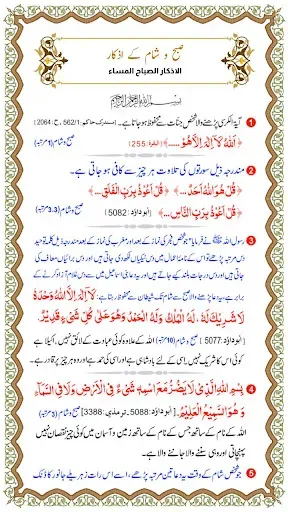 صبح و شام کے اذکار
الاذکار الصباح المساء
بسم اللہ الرحمن الرحیم
1 آیۃ الکرسی پڑھنے والا شخص جنات سے محفوظ ہو جاتا ہے۔ [مستدرک حاکم: 562/1، ح: 2064]
﴿اَللهُ لَآ اِلٰهَ اِلَّا هُوَ ......﴾ [البقرۃ: 255] صبح و شام (1 مرتبہ)
2 مندرجہ ذیل سورتوں کی تلاوت ہر چیز سے کافی ہو جاتی ہے۔
﴿قُلْ هُوَ اللهُ اَحَدٌ ....﴾ ﴿قُلْ اَعُوْذُ بِرَبِّ الْفَلَقِ ....﴾
﴿قُلْ اَعُوْذُ بِرَبِّ النَّاسِ ....﴾ [ابوداؤد: 5082] صبح و شام (3،3 مرتبہ)
3 رسول اللہ ﷺ نے فرمایا: "جو شخص فجر کی نماز کے بعد اور مغرب کی نماز کے بعد درج ذیل کلمہ توحید
دس مرتبہ پڑھے تو اس کے نامۂ اعمال میں دس نیکیاں لکھی جاتی ہیں اور دس برائیاں معاف کی
جاتی ہیں اور دس درجات بلند کیے جاتے ہیں اور یہ عمل بنی اسماعیل میں سے دس غلام آزاد کرنے کے
برابر ہے، یہ دعا پڑھنے والا صبح سے شام تک شیطان سے محفوظ رہتا ہے: لَآ اِلٰهَ اِلَّا اللهُ وَحْدَهٗ
لَا شَرِيْكَ لَهٗ، لَهُ الْمُلْكُ وَلَهُ الْحَمْدُ وَهُوَ عَلٰى كُلِّ شَىْءٍ قَدِيْرٌ.
[ابوداؤد: 5077] صبح و شام (10 مرتبہ) اللہ کے علاوہ کوئی عبادت کے لائق نہیں، اکیلا ہے
کوئی اس کا شریک نہیں، اسی کے لیے بادشاہی ہے اور اسی کی حمد ہے اور وہ ہر چیز پر قادر ہے۔
4 بِسْمِ اللهِ الَّذِىْ لَا يَضُرُّ مَعَ اسْمِهٖ شَىْءٌ فِى الْاَرْضِ وَلَا فِى السَّمَآءِ
وَهُوَ السَّمِيْعُ الْعَلِيْمُ. [ابوداؤد: 5088، ترمذی: 3388] صبح و شام (3 مرتبہ)
اللہ کے نام کے ساتھ جس کے نام کے ساتھ زمین و آسمان میں کوئی چیز نقصان نہیں
پہنچاتی اور وہی سننے والا جاننے والا ہے۔
5 جو شخص شام کے وقت یہ دعا تین مرتبہ پڑھے، اسے اس رات زہریلے جانور کا ڈنک